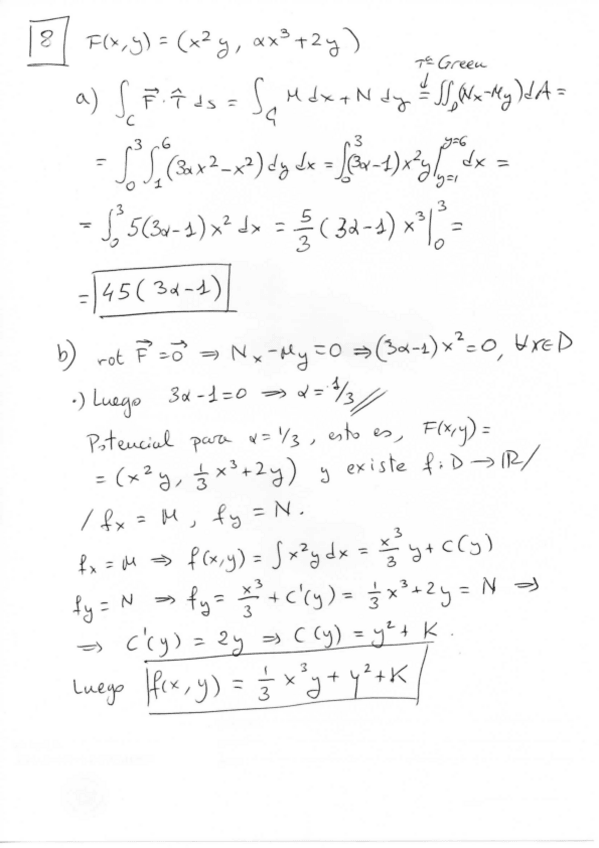 8 F(x,y) = (x² y, αx³ + 2y)
Tª Green
a) ∫_C F⃗ · T̂ ds = ∫_C M dx + N dy = ∬_D (Nx - My) dA =
= ∫₀³ ∫₁⁶ (3αx² - x²) dy dx = ∫₀³ (3α-1) x² y |_{y=1}^{y=6} dx =
= ∫₀³ 5(3α-1) x² dx = 5/3 (3α-1) x³ |₀³ =
= 45(3α-1)
b) rot F⃗ = 0⃗ ⇒ Nx - My = 0 ⇒ (3α-1) x² = 0, ∀x∈D
·) Luego 3α-1=0 ⇒ α = 1/3 //
Potencial para α = 1/3, esto es, F(x,y) =
= (x² y, 1/3 x³ + 2y) y existe f: D → ℝ /
/ fx = M, fy = N.
fx = M ⇒ f(x,y) = ∫ x² y dx = x³/3 y + C(y)
fy = N ⇒ fy = x³/3 + C'(y) = 1/3 x³ + 2y = N ⇒
⇒ C'(y) = 2y ⇒ C(y) = y² + K.
Luego f(x,y) = 1/3 x³ y + y² + K